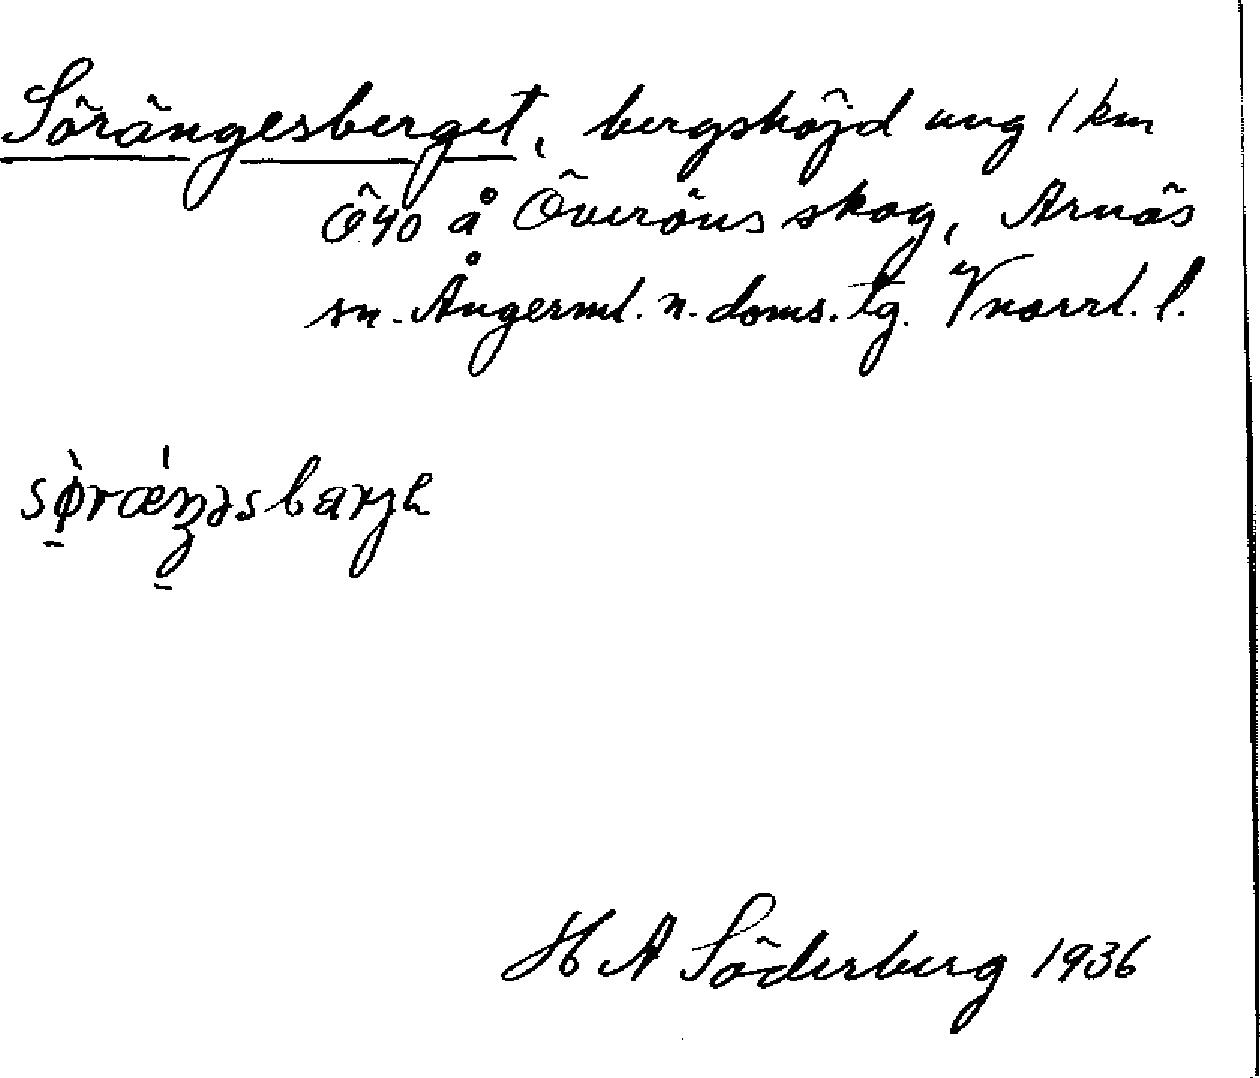 Sörängesberget, bergshöjd ung 1 km
Ö40 å Överöns skog, Arnäs
sn. Ångerml. n. doms. tg. Vnorrl. l.
sø̀rǽŋəsbarjh
H A Söderberg 1936